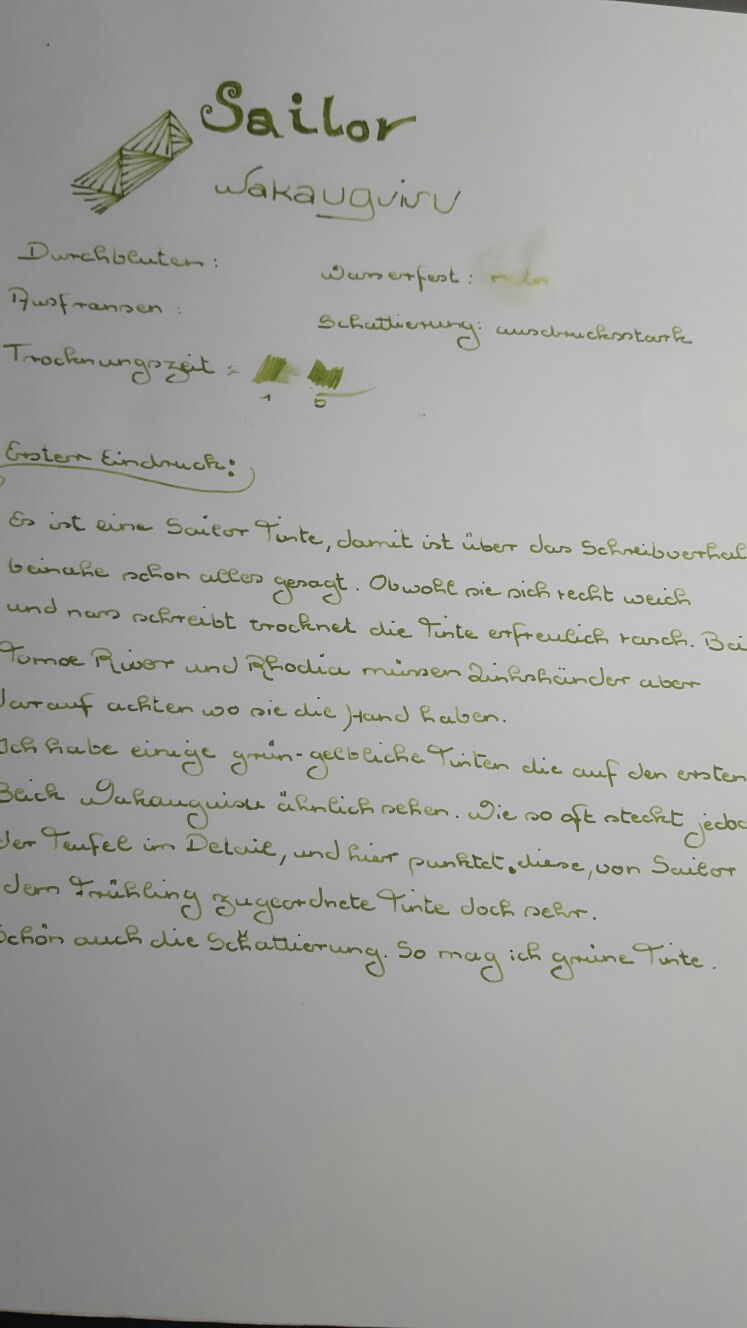 Sailor
Wakauguisu
Durchbluten:
Wasserfest: nein
Ausfransen:
Schattierung: ausdrucksstark
Trocknungszeit:
1 5
Erster Eindruck:
Es ist eine Sailor Tinte, damit ist über das Schreibverhal
beinahe schon alles gesagt. Obwohl sie sich recht weich
und nass schreibt trocknet die Tinte erfreulich rasch. Bei
Tomoe River und Rhodia müssen Linkshänder aber
darauf achten wo sie die Hand haben.
Ich habe einige grün-gelbliche Tinten die auf den ersten
Blick Wakauguisu ähnlich sehen. Wie so oft steckt jedoc
der Teufel im Detail, und hier punktet diese, von Sailor
dem Frühling zugeordnete Tinte doch sehr.
Schön auch die Schattierung. So mag ich grüne Tinte.